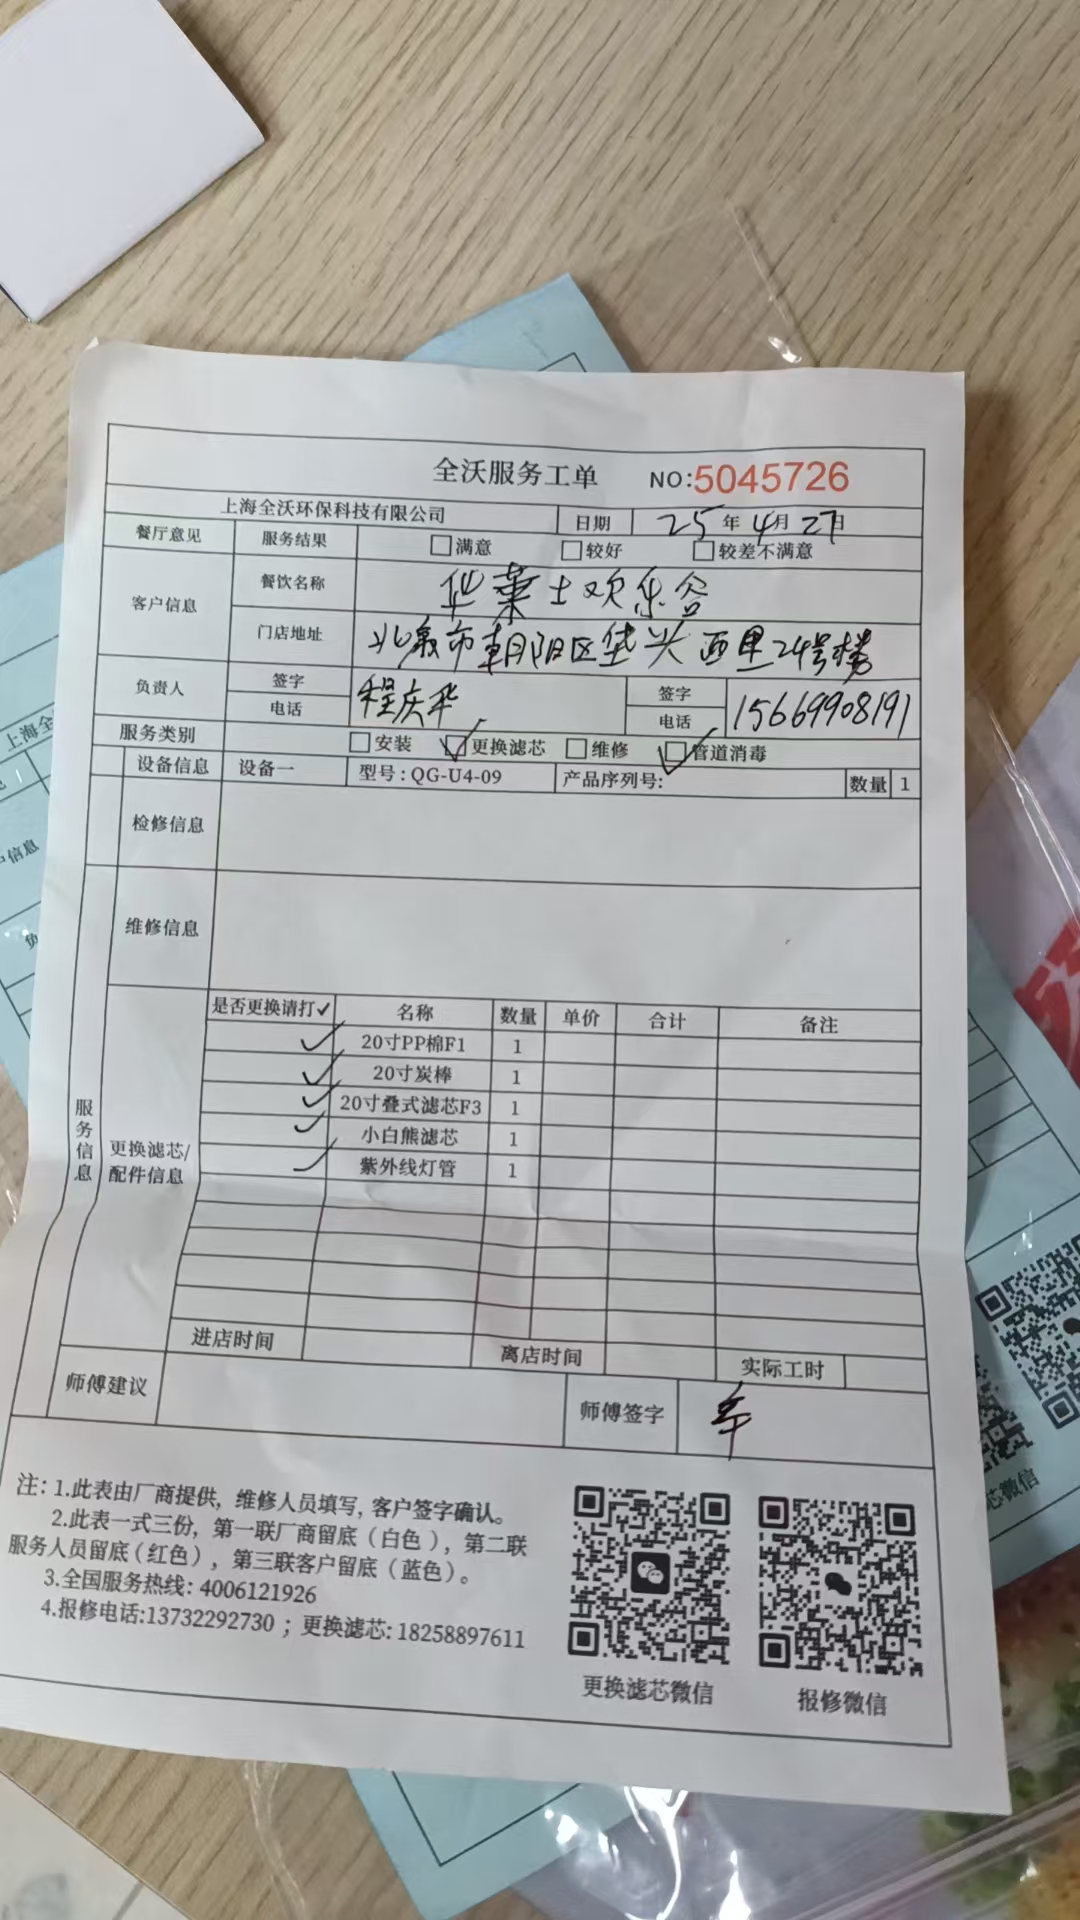 全沃服务工单 NO:5045726
上海全沃环保科技有限公司 日期 25年4月27日
餐厅意见 服务结果 满意 较好 较差不满意
客户信息 餐饮名称 华莱士欢乐谷
门店地址 北京市朝阳区垡头西里24号楼
负责人 签字 程庆华 签字
电话 电话 15669908191
服务类别 安装 更换滤芯 维修 管道消毒
设备信息 设备一 型号:QG-U4-09 产品序列号: 数量 1
检修信息
维修信息
服务信息
更换滤芯/配件信息
是否更换请打✓ 名称 数量 单价 合计 备注
✓ 20寸PP棉F1 1
✓ 20寸炭棒 1
✓ 20寸叠式滤芯F3 1
✓ 小白熊滤芯 1
✓ 紫外线灯管 1
进店时间 离店时间 实际工时
师傅建议 师傅签字
注: 1.此表由厂商提供, 维修人员填写, 客户签字确认。
2.此表一式三份, 第一联厂商留底(白色), 第二联
服务人员留底(红色), 第三联客户留底(蓝色)。
3.全国服务热线: 4006121926
4.报修电话:13732292730 ; 更换滤芯: 18258897611
更换滤芯微信 报修微信
上海全
信息
芯微信